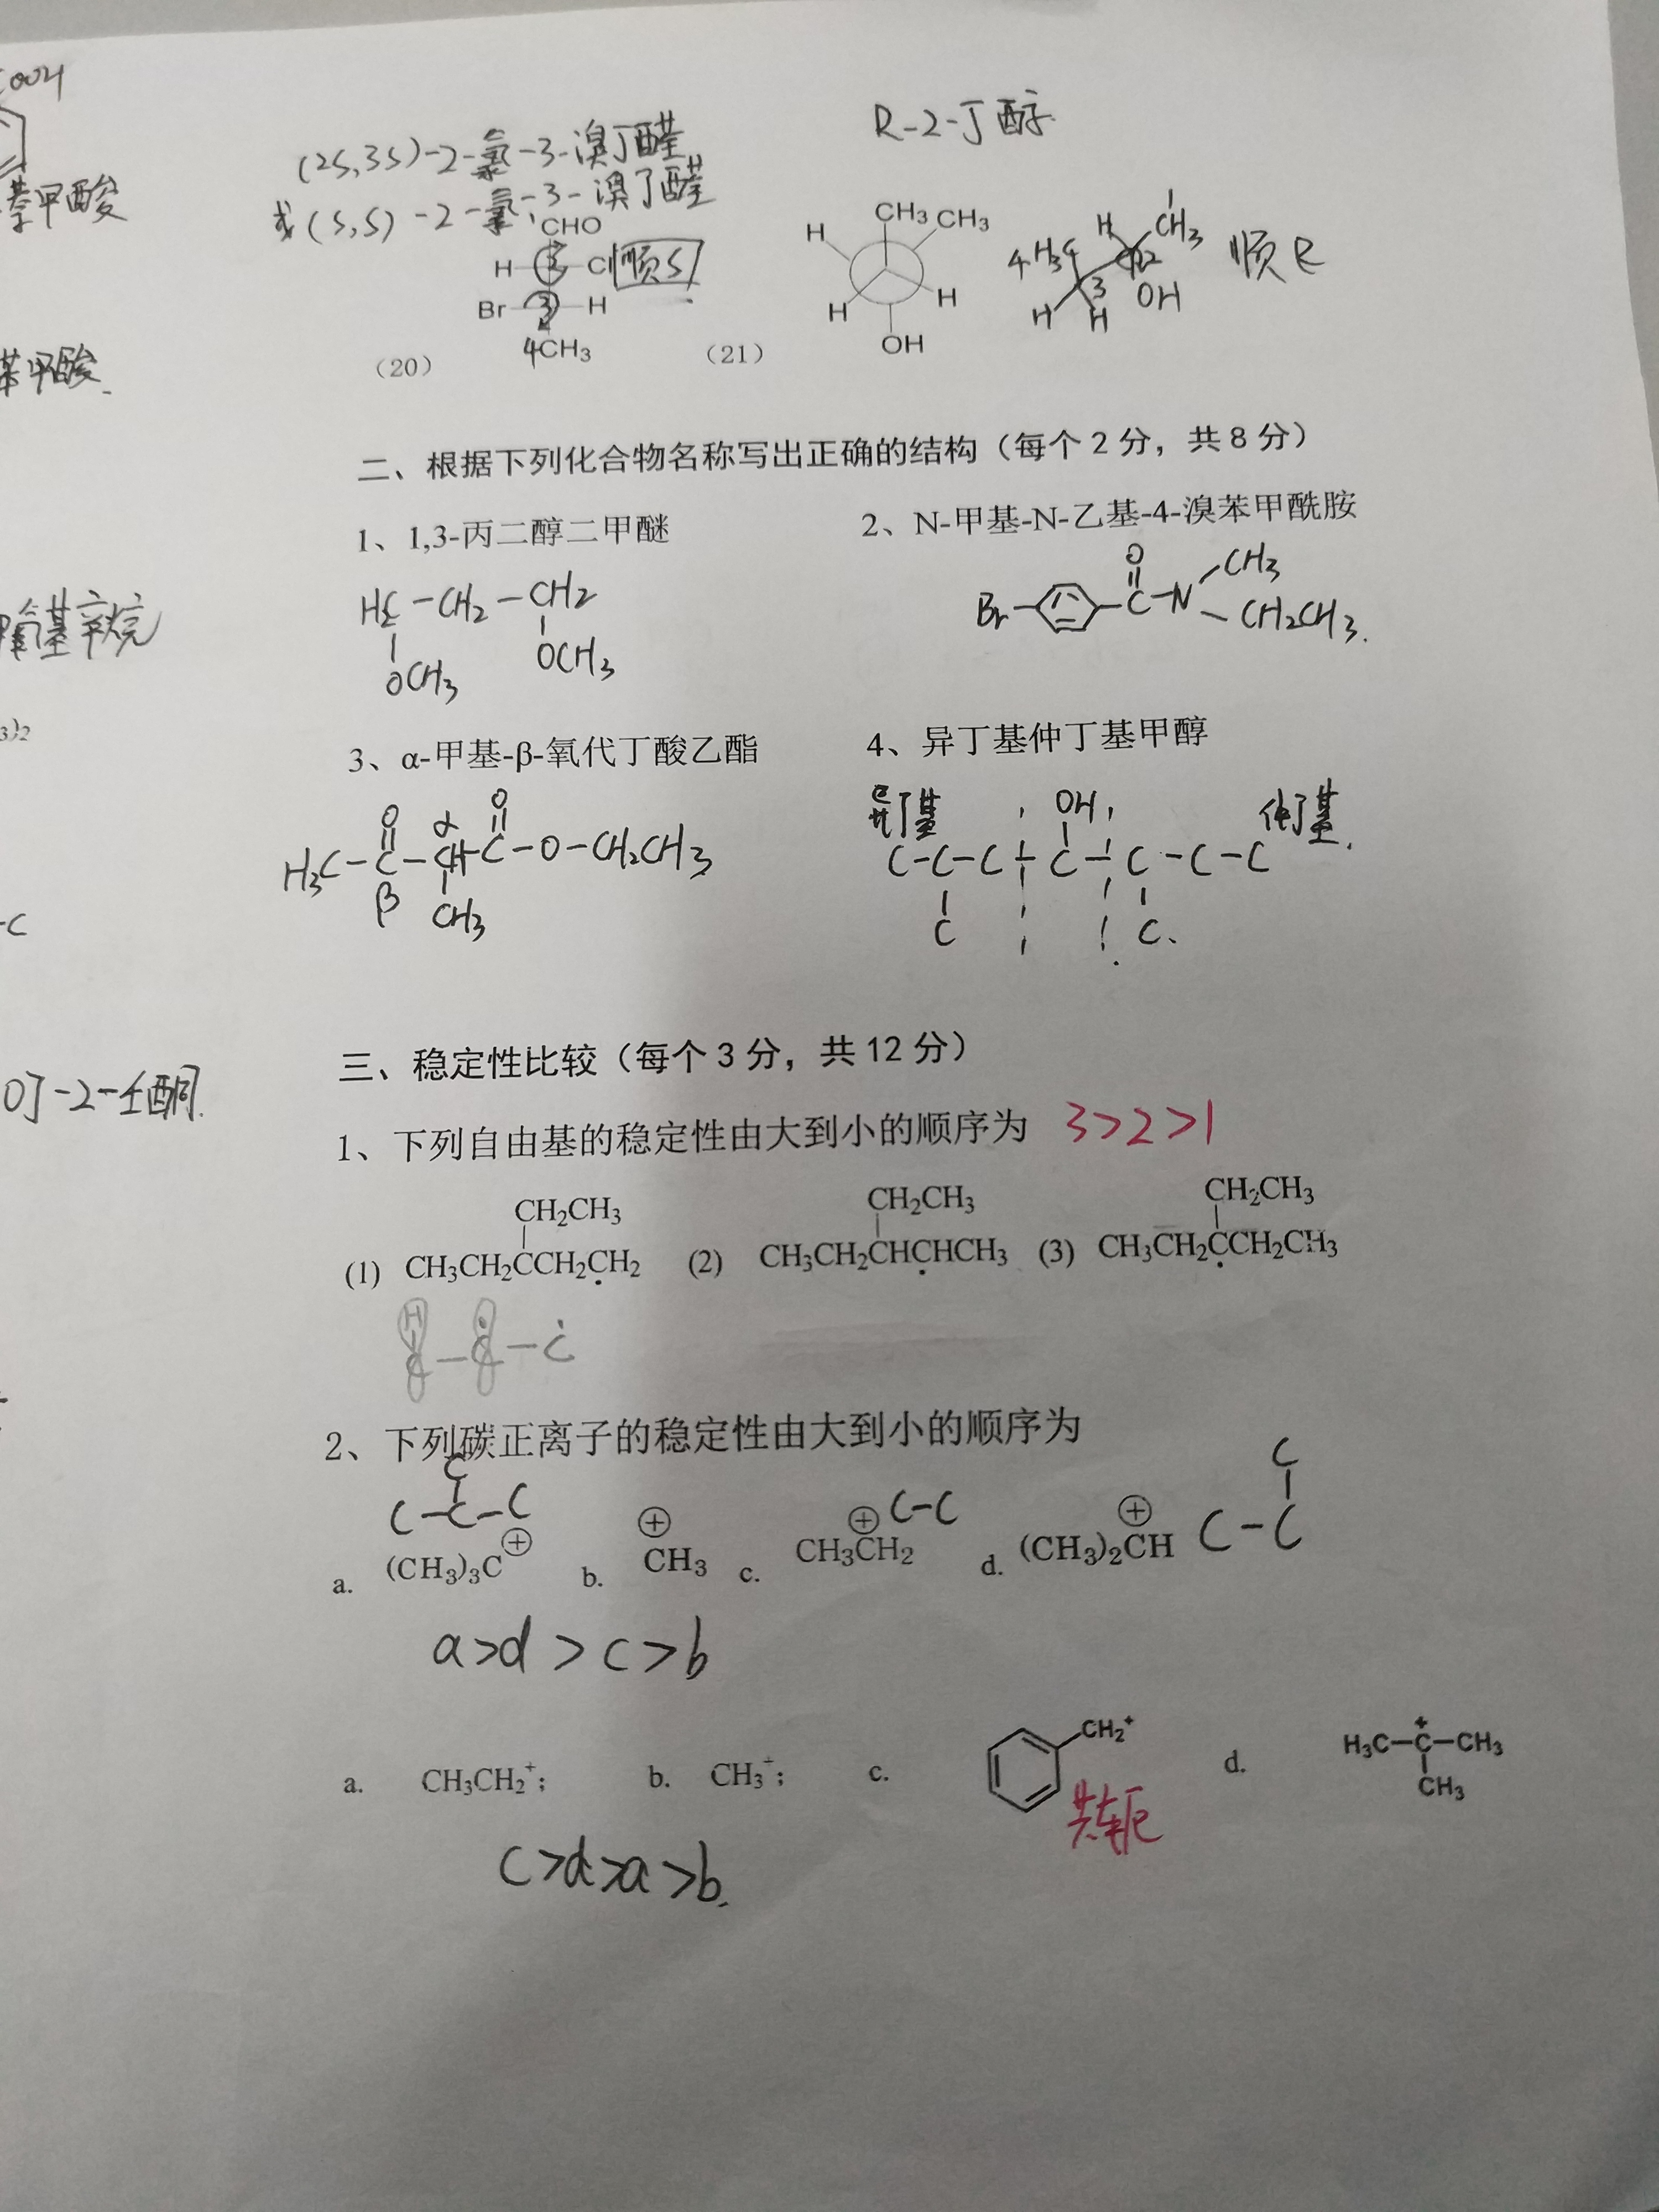 COOH
苯甲酸
苯甲酸
甲氧基辛烷
3)2
-C
0]-2-壬酮.
(2S,3S)-2-氯-3-溴丁醛
或(S,S)-2-氯-3-溴丁醛
CHO
H 2 Cl 顺S
Br 3 H
4CH3
(20)
R-2-丁醇
CH3 CH3
H
H H
OH
(21)
H CH3
4H3C 2 顺R
3 OH
H H
二、根据下列化合物名称写出正确的结构(每个2分,共8分)
1、1,3-丙二醇二甲醚
H2C-CH2-CH2
OCH3 OCH3
2、N-甲基-N-乙基-4-溴苯甲酰胺
O CH3
Br C-N
CH2CH3.
3、α-甲基-β-氧代丁酸乙酯
O α O
H3C-C-CH-C-O-CH2CH3
β CH3
4、异丁基仲丁基甲醇
异丁基 OH 仲丁基.
C-C-C-C-C-C-C
C C.
三、稳定性比较(每个3分,共12分)
1、下列自由基的稳定性由大到小的顺序为 3>2>1
CH2CH3 CH2CH3 CH2CH3
(1) CH3CH2CCH2CH2 (2) CH3CH2CHCHCH3 (3) CH3CH2CCH2CH3
H
C-C-C
2、下列碳正离子的稳定性由大到小的顺序为
C C
C-C-C C-C C-C
a. (CH3)3C⊕ b. ⊕CH3 c. CH3⊕CH2 d. (CH3)2⊕CH
a>d>c>b
a. CH3CH2+; b. CH3+; c. CH2+ d. H3C-C+-CH3
CH3
共轭
c>d>a>b.